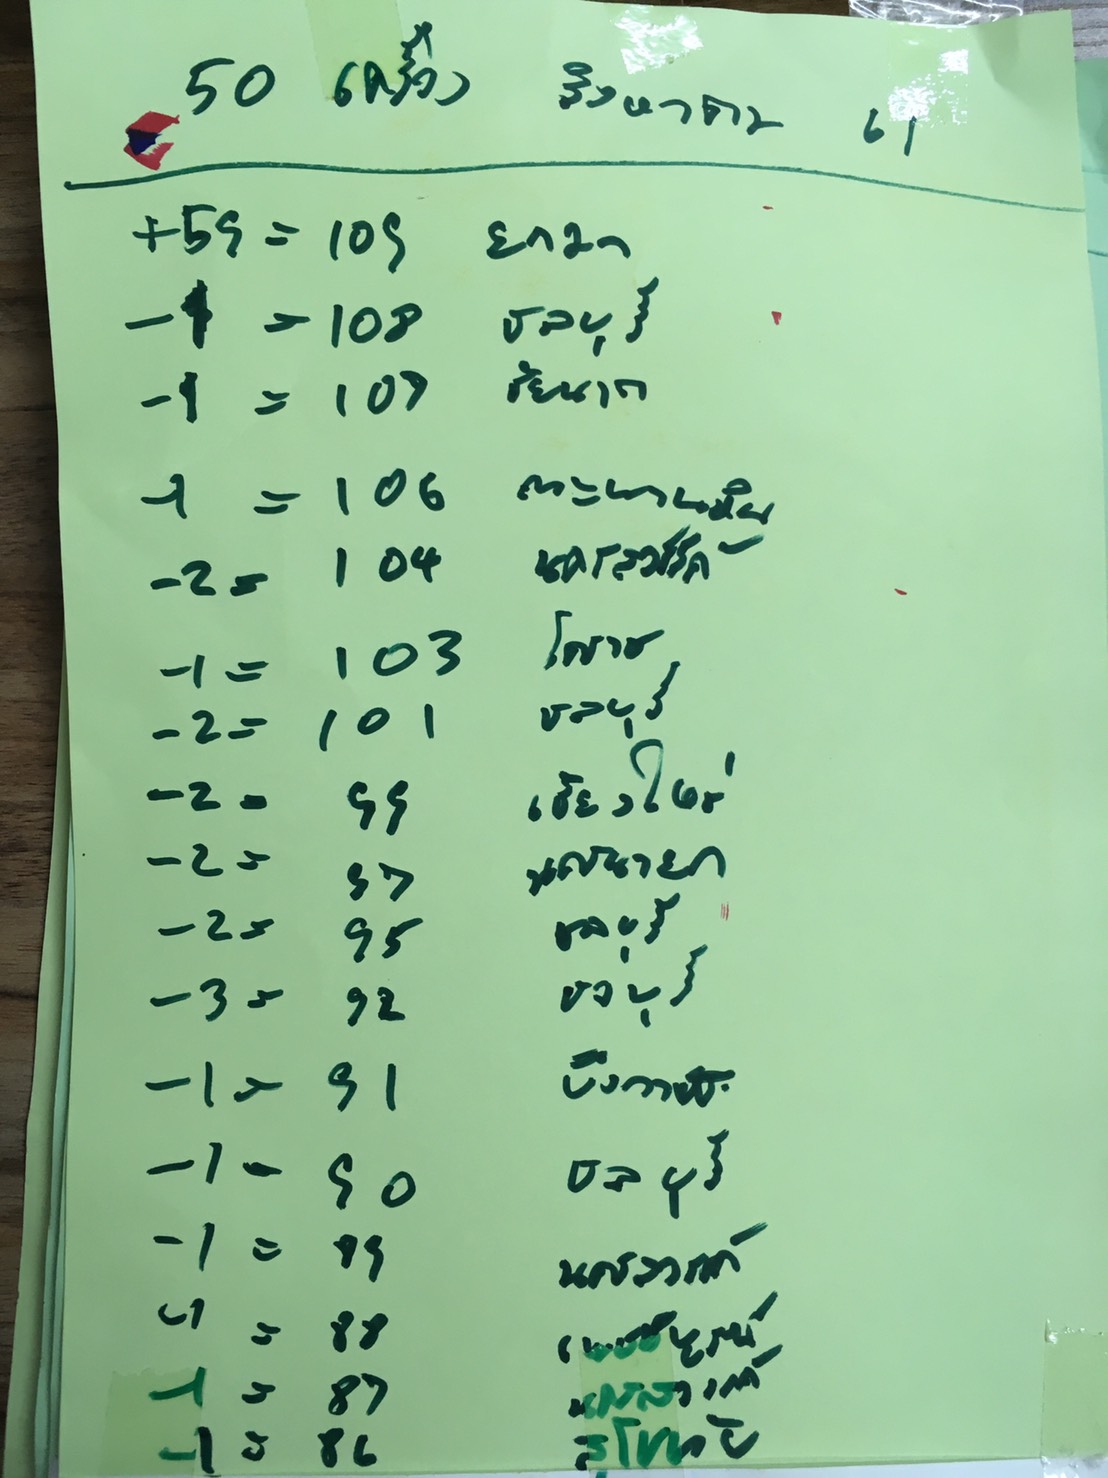 50 เครื่อง สิงหาคม 61
+59 = 109 ยกมา
-1 = 108 ชลบุรี
-1 = 107 ชัยนาท
-1 = 106 ตะพานหิน
-2 = 104 นครสวรรค์
-1 = 103 โคราช
-2 = 101 ชลบุรี
-2 = 99 เชียงใหม่
-2 = 97 นครนายก
-2 = 95 ชลบุรี
-3 = 92 ชลบุรี
-1 = 91 บึงกาฬ
-1 = 90 ชลบุรี
-1 = 89 นครสวรรค์
-1 = 88 เพชรบูรณ์
-1 = 87 นครสวรรค์
-1 = 86 สุโขทัย